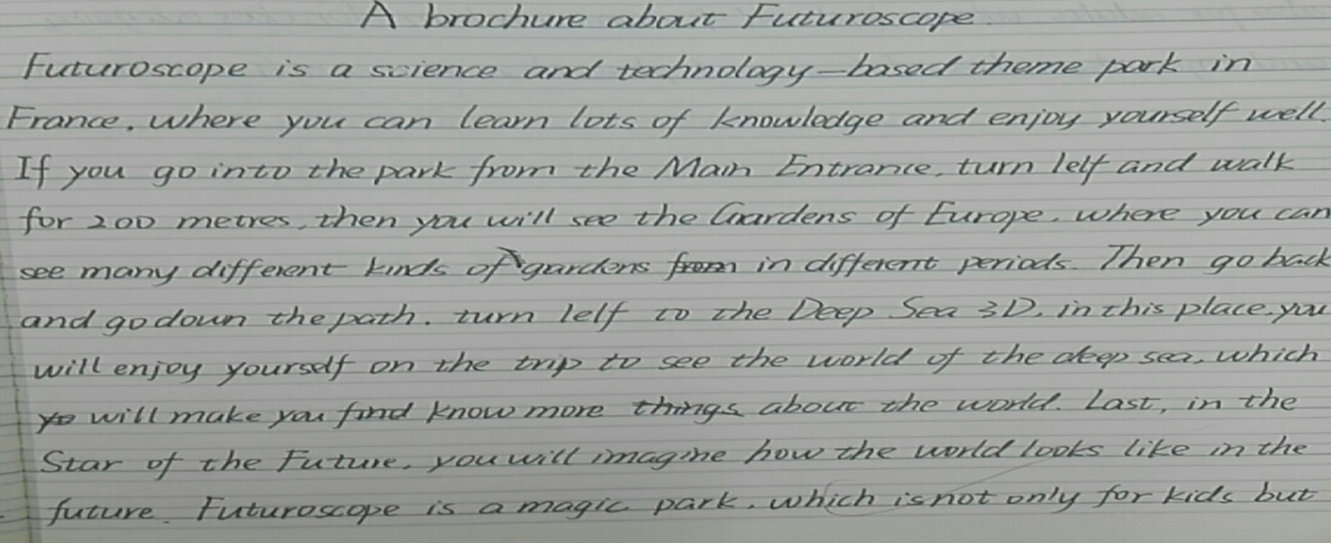 A brochure about Futuroscope
Futuroscope is a science and technology-based theme park in
France, where you can learn lots of knowledge and enjoy yourself well.
If you go into the park from the Main Entrance, turn lelf and walk
for 200 metres, then you will see the Gardens of Europe, where you can
see many different kinds of gardens from in different periods. Then go back
and go down the path, turn lelf to the Deep Sea 3D, in this place, you
will enjoy yourself on the trip to see the world of the deep sea, which
yo will make you find know more things about the world. Last, in the
Star of the Future, you will imagine how the world looks like in the
future. Futuroscope is a magic park, which is not only for kids but